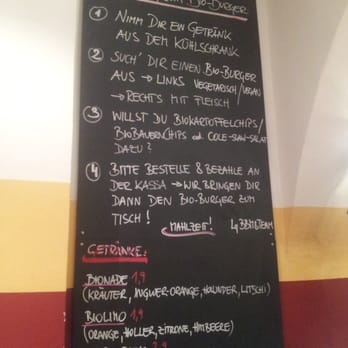 BIO-BURGER
1 NIMM DIR EIN GETRÄNK
AUS DEM KÜHLSCHRANK
2 SUCH' DIR EINEN BIO-BURGER
AUS → LINKS VEGETARISCH/VEGAN
→ RECHTS MIT FLEISCH
3 WILLST DU BIOKARTOFFELCHIPS/
BIOBAUERNCHIPS od. COLE-SLAW-SALAT
DAZU?
4 BITTE BESTELLE & BEZAHLE AN
DER KASSA → WIR BRINGEN DIR
DANN DEN BIO-BURGER ZUM
TISCH!
MAHLZEIT!
TEAM
GETRÄNKE:
BIONADE 1,9
(KRÄUTER, INGWER-ORANGE, HOLUNDER, LITSCHI)
BIOLIMO 1,9
(ORANGE, HOLLER, ZITRONE, HIMBEERE)